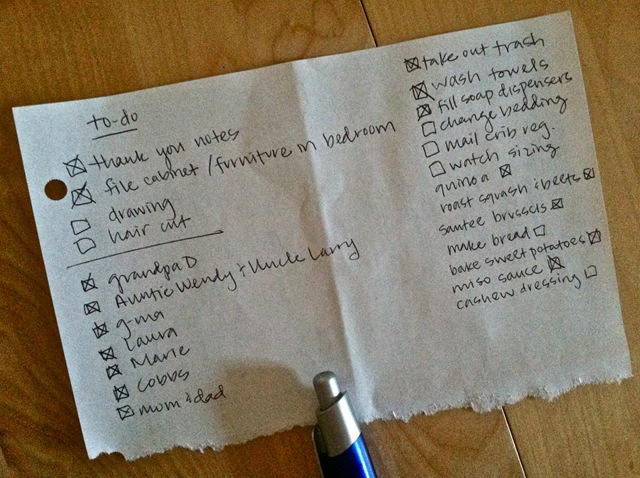 to-do
thank you notes
file cabinet / furniture in bedroom
drawing
hair cut
grandpa D
Auntie Wendy & Uncle Larry
g-ma
Laura
Marie
Cobbs
mom & dad
take out trash
wash towels
fill soap dispensers
change bedding
mail crib reg.
watch sizing
quinoa
roast squash & beets
sautee brussels
make bread
bake sweet potatoes
miso sauce
cashew dressing